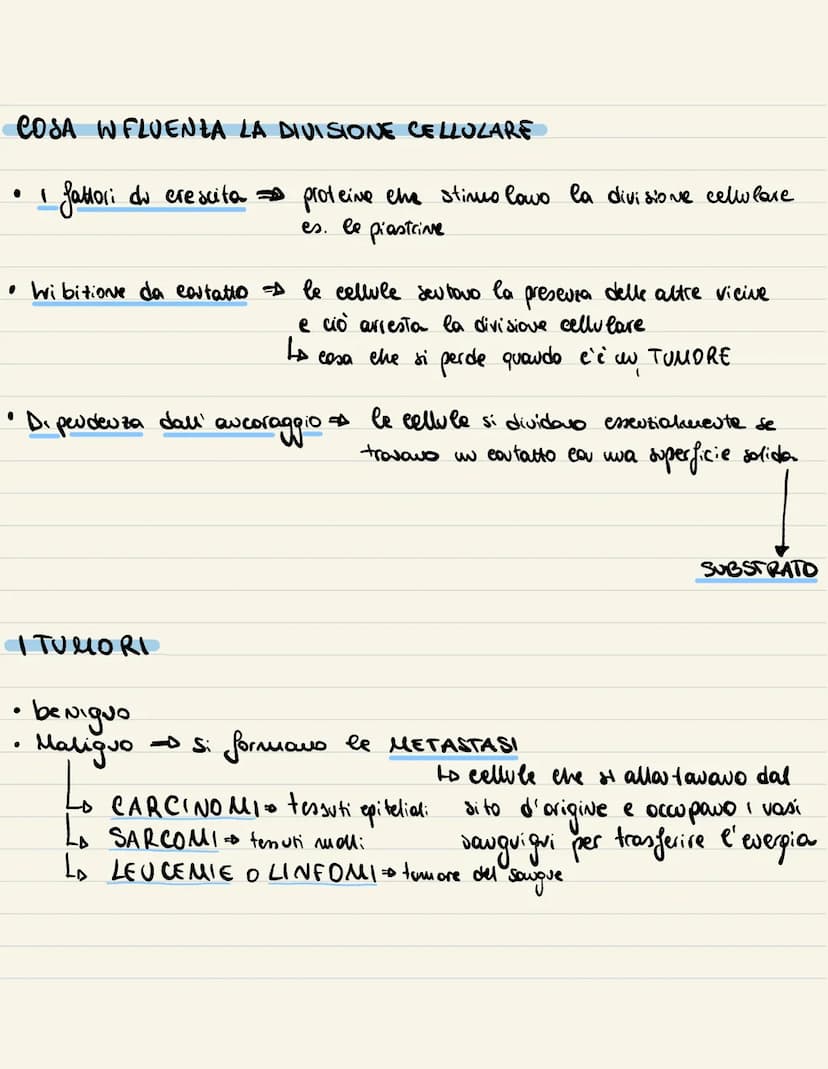 COSA INFLUENZA LA DIVISIONE CELLULARE
• I fattori di crescita ⇒ proteine che stimolano la divisione cellulare
es. le piastrine
• Inibizione da contatto ⇒ le cellule sentono la presenza delle altre vicine
e ciò arresta la divisione cellulare
↳ cosa che si perde quando c'è un TUMORE
• Dipendenza dall'ancoraggio ⇒ le cellule si dividono essenzialmente se
trovano un contatto con una superficie solida
SUBSTRATO
I TUMORI
• benigno
• Maligno → si formano le METASTASI
↳ cellule che si allontanano dal
↳ CARCINOMI ⇒ tessuti epiteliali sito d'origine e occupano i vasi
↳ SARCOMI ⇒ tessuti molli sanguigni per trasferire l'energia
↳ LEUCEMIE O LINFOMI ⇒ tumore del sangue